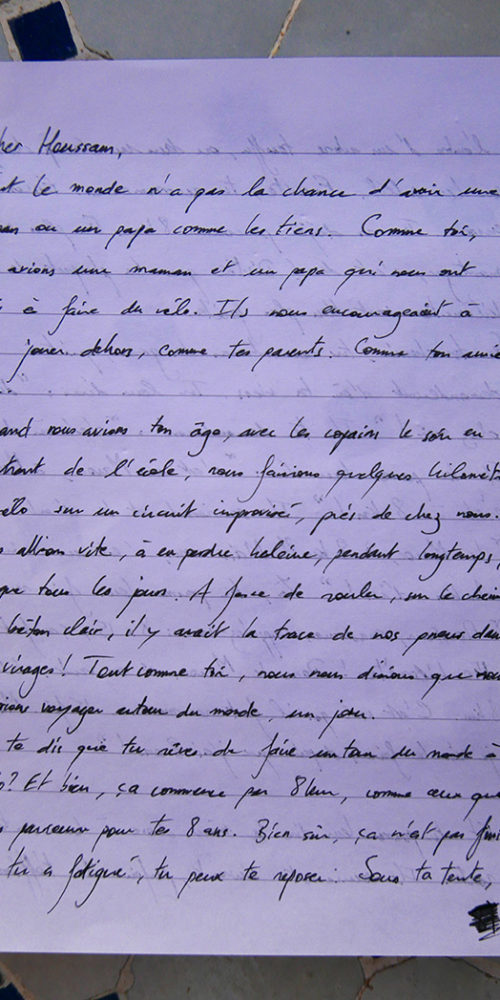 her Houssam,
ut le monde n'a pas la chance d'avoir une
man ou un papa comme les tiens. Comme toi,
avions une maman et un papa qui nous ont
à faire du vélo. Ils nous encourageaient à
jouer dehors, comme tes parents. Comme ton
and nous avions ton âge, avec les copains le soir en
trant de l'école, nous faisions quelques kilomèt
élo sur un circuit improvisé, près de chez nous.
s allions vite, à en perdre haleine, pendant longtemps,
que tous les jours. A force de rouler, sur le chem
béton clair, il y avait la trace de nos pneus dan
virages! Tout comme toi, nous nous disions que nou
rions voyager autour du monde, un jour.
te dis que tu rêves de faire un tour du monde à
o? Et bien, ça commence par 8 km, comme ceux que
s parcouru pour tes 8 ans. Bien sûr, ça n'est pas fini
tu a fatigué, tu peux te reposer. Sous ta tente,